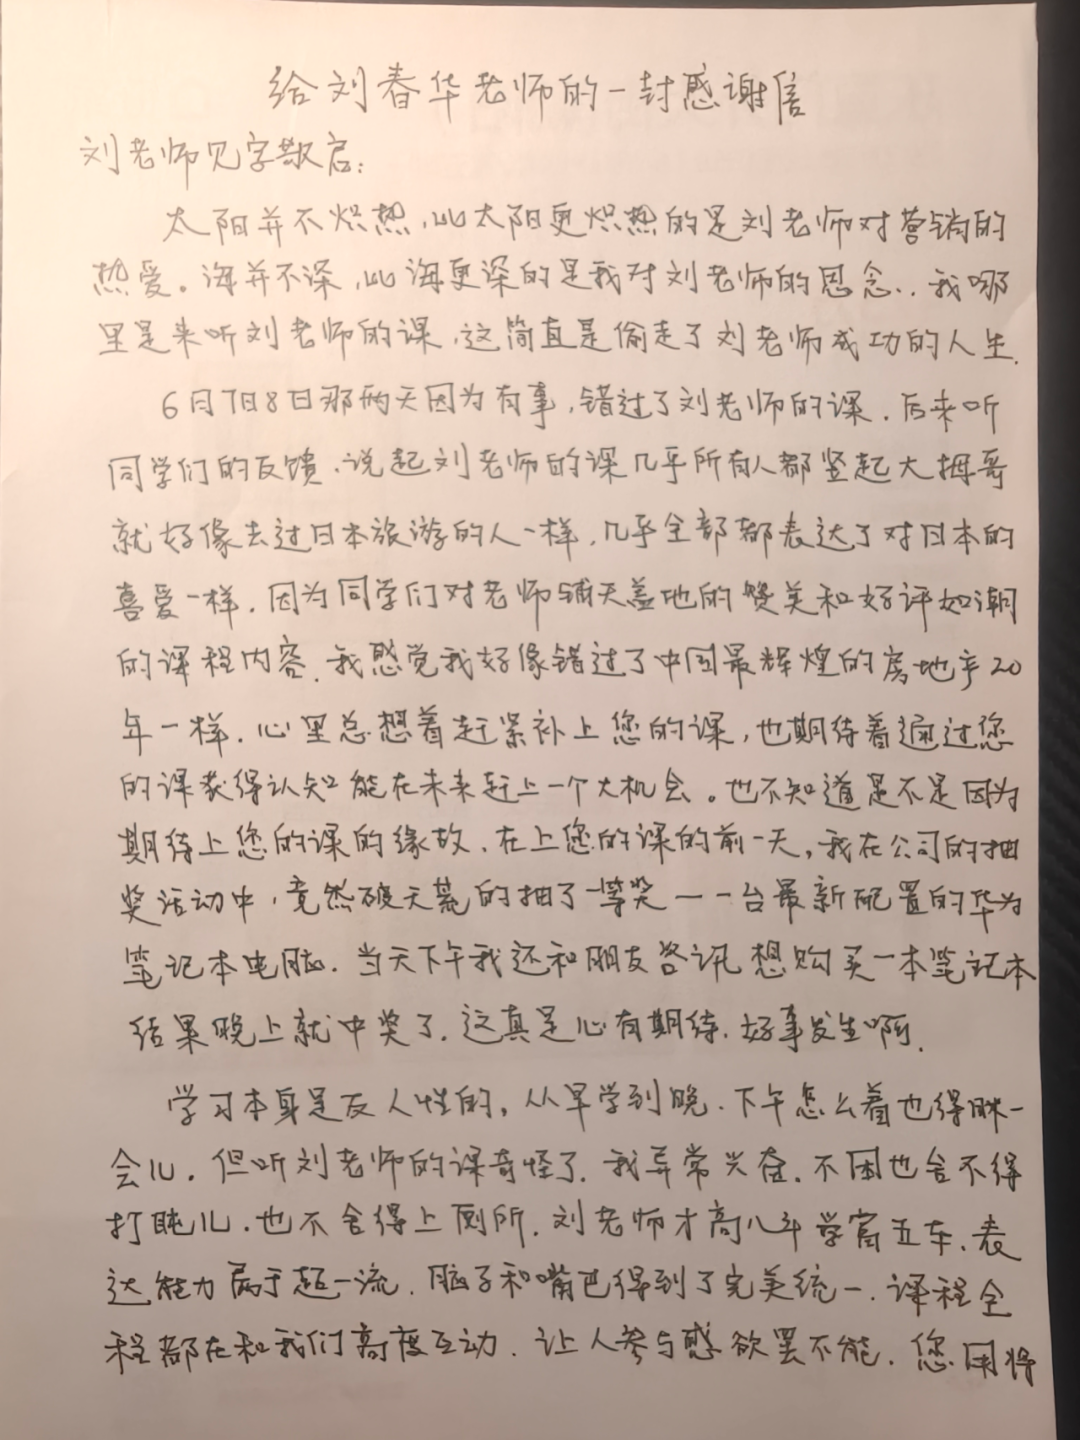 给刘春华老师的一封感谢信
刘老师见字敬启：
太阳并不炽热，比太阳更炽热的是刘老师对营销的
热爱。海并不深，比海更深的是我对刘老师的思念，我哪
里是来听刘老师的课，这简直是偷走了刘老师成功的人生.
6月7日8日那两天因为有事，错过了刘老师的课.后来听
同学们的反馈.说起刘老师的课几乎所有人都竖起大拇哥
就好像去过日本旅游的人一样,几乎全部都表达了对日本的
喜爱一样.因为同学们对老师铺天盖地的赞美和好评如潮
的课程内容.我感觉我好像错过了中国最辉煌的房地产20
年一样.心里总想着赶紧补上您的课,也期待着通过您
的课获得认知能在未来赶上一个大机会。也不知道是不是因为
期待上您的课的缘故.在上您的课的前一天,我在公司的抽
奖活动中,竟然破天荒的抽了一等奖一一台最新配置的华为
笔记本电脑.当天下午我还和朋友咨讯想购买一本笔记本
结果晚上就中奖了.这真是心有期待.好事发生啊.
学习本身是反人性的,从早学到晚.下午怎么着也得眯一
会儿.但听刘老师的课奇怪了.我异常兴奋.不困也舍不得
打盹儿.也不舍得上厕所.刘老师才高八斗学富五车、表
达能力属于超一流.脑子和嘴巴得到了完美统一.课程全
程都在和我们高度互动.让人参与感欲罢不能.您用将